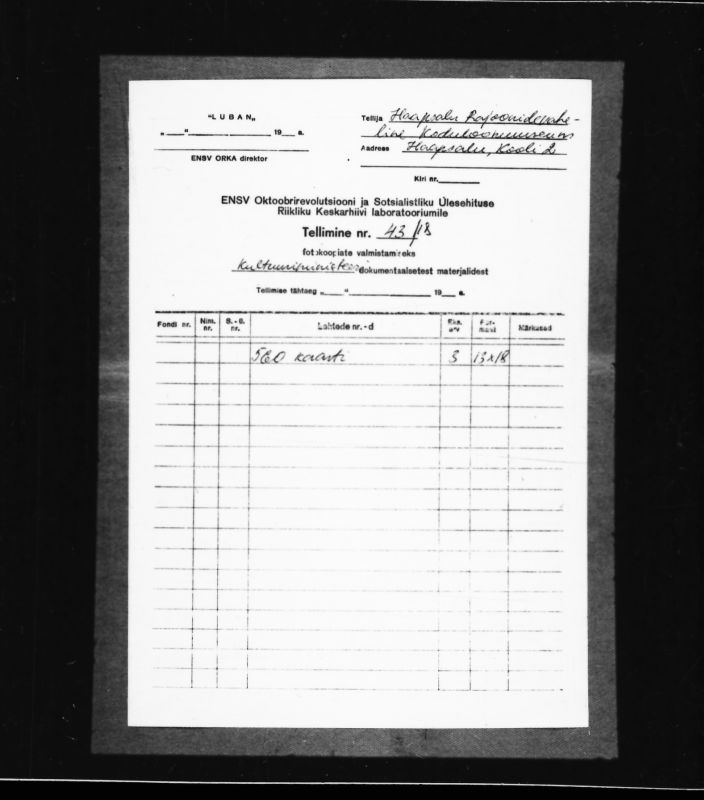 "LUBAN„
„___"__________ 19__ a.
ENSV ORKA direktor
Tellija Haapsalu Rajoonidevahe-
line Koduloomuuseum
Aadress Haapsalu, Kooli 2
Kiri nr.
ENSV Oktoobrirevolutsiooni ja Sotsialistliku Ülesehituse
Riikliku Keskarhiivi laboratooriumile
Tellimine nr. 43/18
fotokoopiate valmistamiseks
Kultuuriministeeri dokumentaalsetest materjalidest
Tellimise tähtaeg „___"__________ 19__ a.
Fondi nr. Nim. nr. S.-ü. nr. Lehtede nr.-d Eks. arv For- maat Märkused
560 kaarti 3 13x18